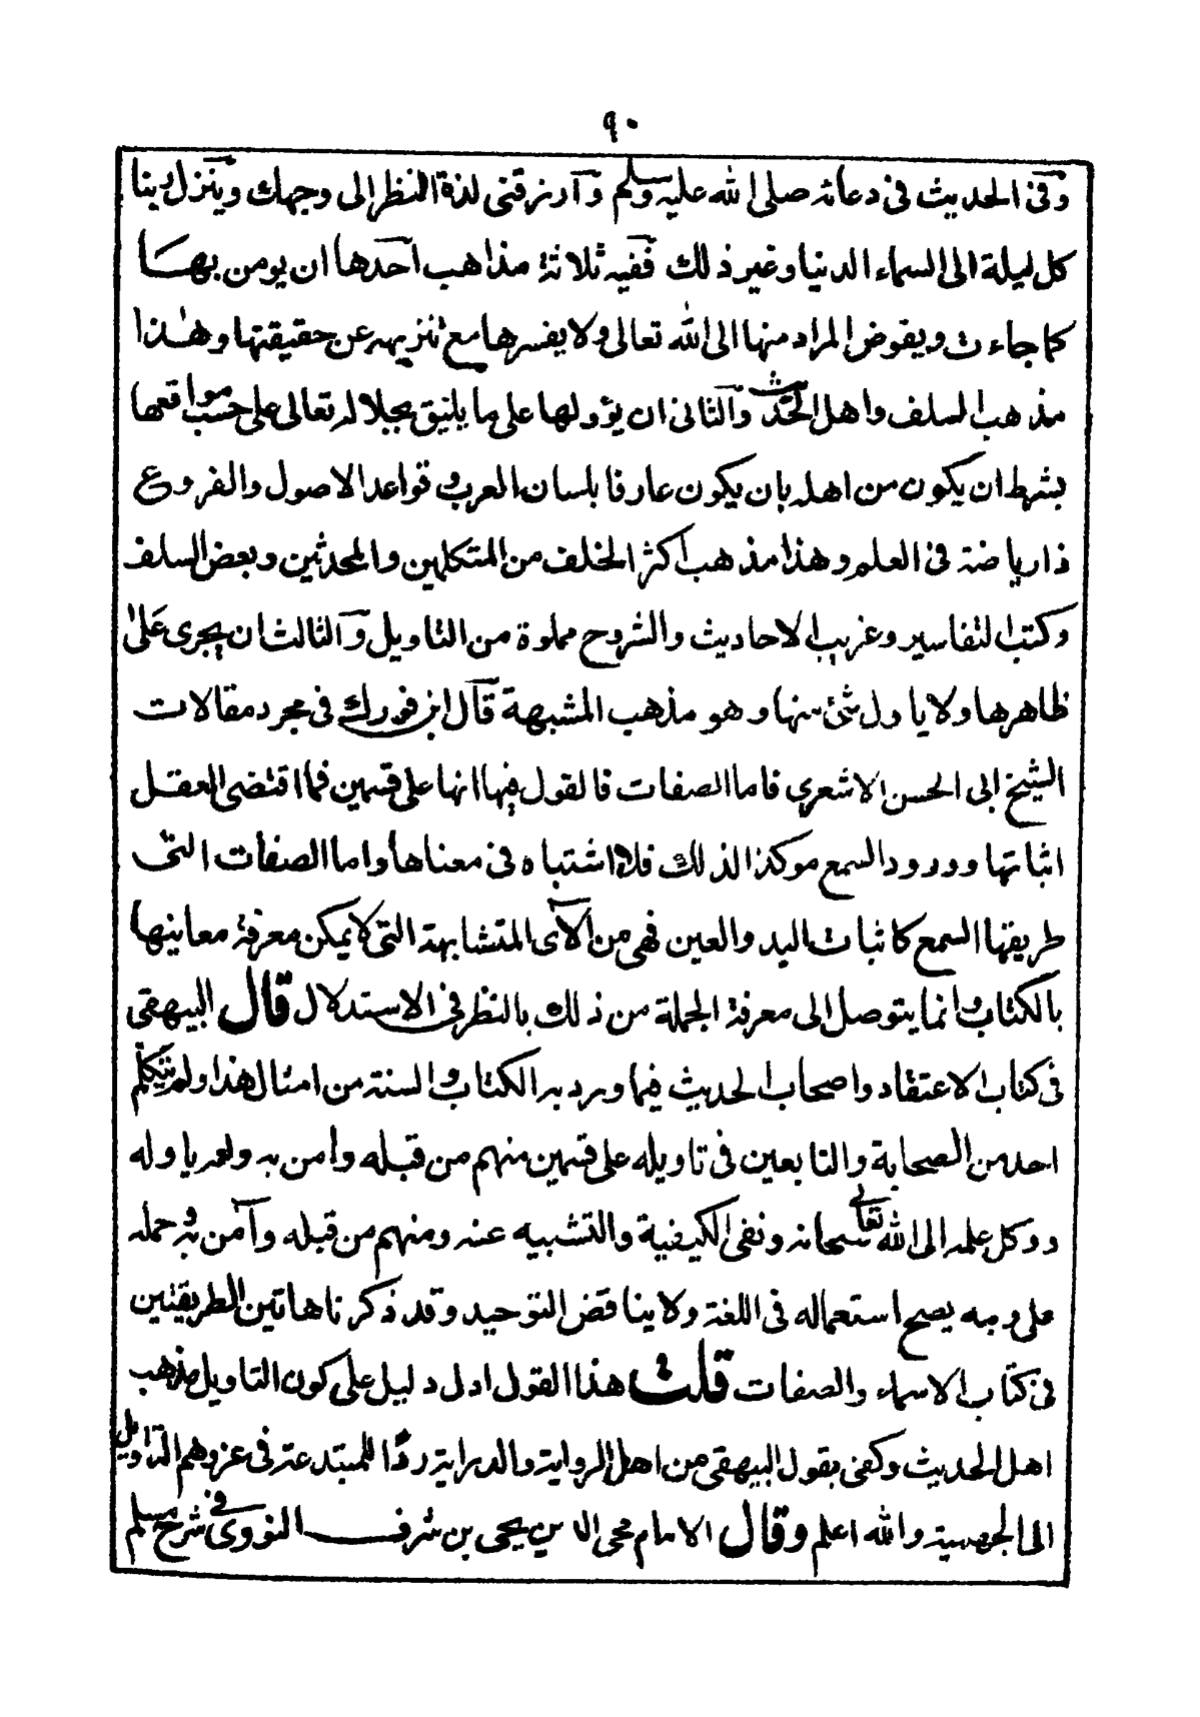 ٩٠
وفى الحديث فى دعائه صلى الله عليه وسلم وارزقنى لذة النظر الى وجهك وينزل ربنا
كل ليلة الى السماء الدنيا وغير ذلك ففيه ثلاثة مذاهب احدها ان يومن بها
كما جاءت ويفوض المراد منها الى الله تعالى ولا يفسرها مع تنزيهه عن حقيقتها وهذا
مذهب السلف واهل الحديث والثانى ان يؤولها على ما يليق بجلاله تعالى على حسب مواقعها
بشرط ان يكون من اهله بان يكون عارفا بلسان العرب و قواعد الاصول والفروع
ذا رياضة فى العلم وهذا مذهب اكثر الخلف من المتكلمين والمحدثين وبعض السلف
وكتب التفاسير وغريب الاحاديث والشروح مملوة من التاويل والثالث ان يجرى على
ظاهرها ولا ياول شئ منها وهو مذهب المشبهة قال ابن فورك فى مجرد مقالات
الشيخ ابى الحسن الاشعرى فاما الصفات فالقول فيها انها على قسمين فما اقتضى العقل
اثباتها وورود السمع موكدا لذلك فلا اشتباه فى معناها واما الصفات التى
طريقها السمع كاثبات اليد والعين فهى من الآى المتشابهة التى لا يمكن معرفة معانيها
بالكتاب وانما يتوصل الى معرفة الجملة من ذلك بالنظر فى الاستدلال قال البيهقى
فى كتاب الاعتقاد واصحاب الحديث فيما ورد به الكتاب والسنة من امثال هذا ولم يتكلم
احد من الصحابة والتابعين فى تاويله على قسمين منهم من قبله وامن به ولم ياوله
ووكل علمه الى الله سبحانه تعالى ونفى الكيفية والتشبيه عنه ومنهم من قبله وآمن به وحمله
على وجه يصح استعماله فى اللغة ولا يناقض التوحيد وقد ذكرنا هاتين الطريقتين
فى كتاب الاسماء والصفات قلت هذا القول ادل دليل على كون التاويل مذهب
اهل الحديث وكفى بقول البيهقى من اهل الرواية والدراية ردًّا للمبتدعة فى عزوهم التاويل
الى الجهمية والله اعلم وقال الامام محى الدين يحيى بن شرف النووى فى شرح مسلم